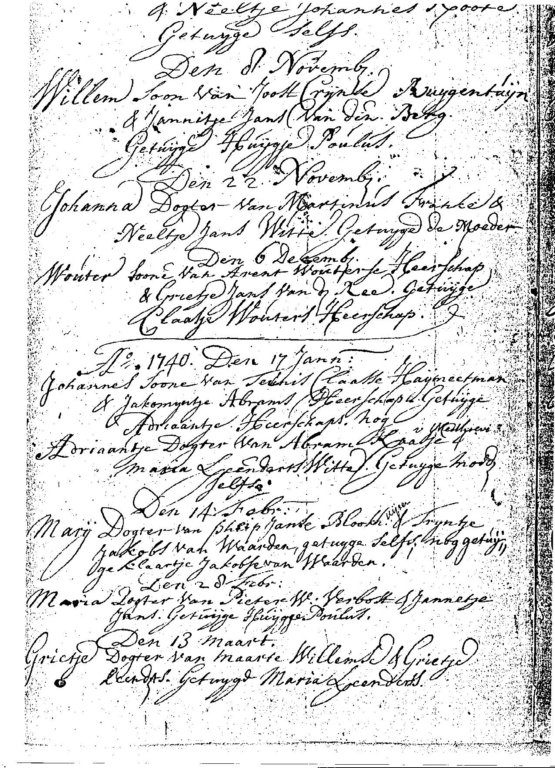 & Neeltje Johannes Groote
Getuyge Selfs.
Den 8 Novemb.
Willem Soon van Joost Cryne Ruygentuijn
& Jannitje Jans van den Berg.
Getuyge Huygje Poulus.
Den 22 Novemb.
Johanna Dogter van Martinus Franke &
Neeltje Jans Witte. Getuyge de Moeder
Den 6 Decemb.
Wouter Soone van Arent Wouterse Heerschap
& Grietje Jans van d Ree. Getuyge
Claatje Wouters Heerschap.
Ao. 1740. Den 17 Jann:
Johannes Soone van Teunis Claasse Haymeetman
& Jakomyntje Abrams Heerschap Getuyge
Adriaantje Heerschap. nog
Adriaantje Dogter van Abram Kaatje &
Maria Leenderts Witte. Getuyge moed
Selfs.
Den 14 Febr:
Marij Dogter van Philip Janse Blook & Tryntje
Jakobs van Waarden, getuyge Selfs, nog getuij
ge Klaartje Jakobse van Waarden.
Den 28 Febr:
Maria Dogter van Pieter W. Verbott & Jannetje
Jans. Getuyge Huygje Poulus.
Den 13 Maart.
Grietje Dogter van Maarte Willemse & Grietje
Leenders. Getuyge Maria Leenders.